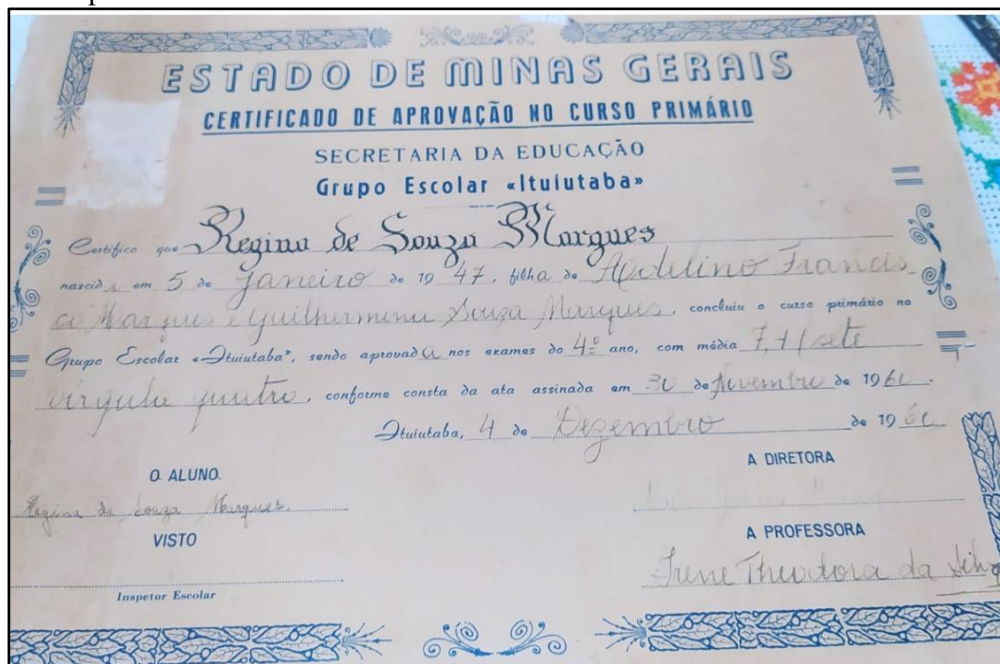 ESTADO DE MINAS GERAIS
CERTIFICADO DE APROVAÇÃO NO CURSO PRIMÁRIO
SECRETARIA DA EDUCAÇÃO
Grupo Escolar «Ituiutaba»
Certifico que Regina de Souza Marques
nascida em 5 de Janeiro de 1947, filha de Francis
co Marques e Guilhermina Souza Marques, concluiu o curso primário no
Grupo Escolar «Ituiutaba», sendo aprovada nos exames do 4º ano, com média 7,4 (sete
vírgula quatro, conforme consta da ata assinada em 30 de Novembro de 1960.
Ituiutaba, 4 de Dezembro de 1960
O ALUNO.
A DIRETORA
Regina de Souza Marques.
VISTO
A PROFESSORA
Irene Theodora da Silva
Inspetor Escolar